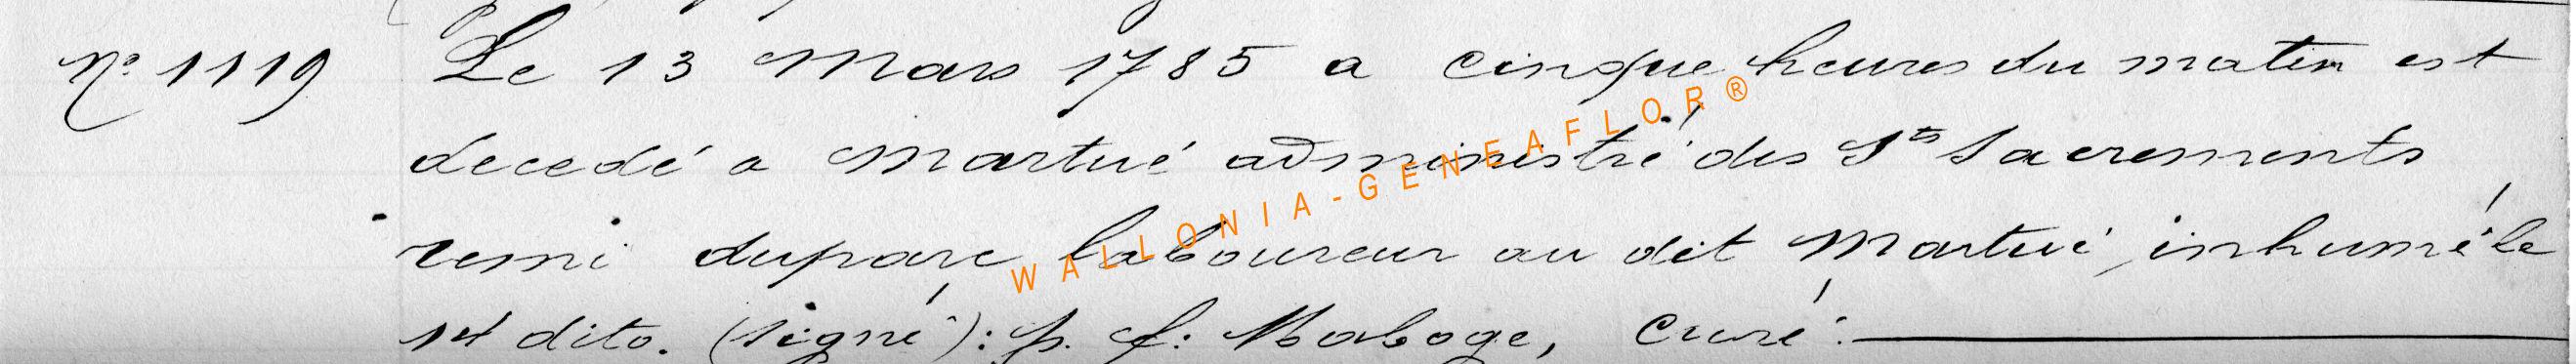 N° 1119 Le 13 Mars 1785 a cinque heures du matin est
decedé a Martué administré des Sts Sacrements
remi duparc laboureur au dit Martué, inhumé le
14 dito. (signé): p. f: Maboge, Curé.
WALLONIA-GENEAFLOR®